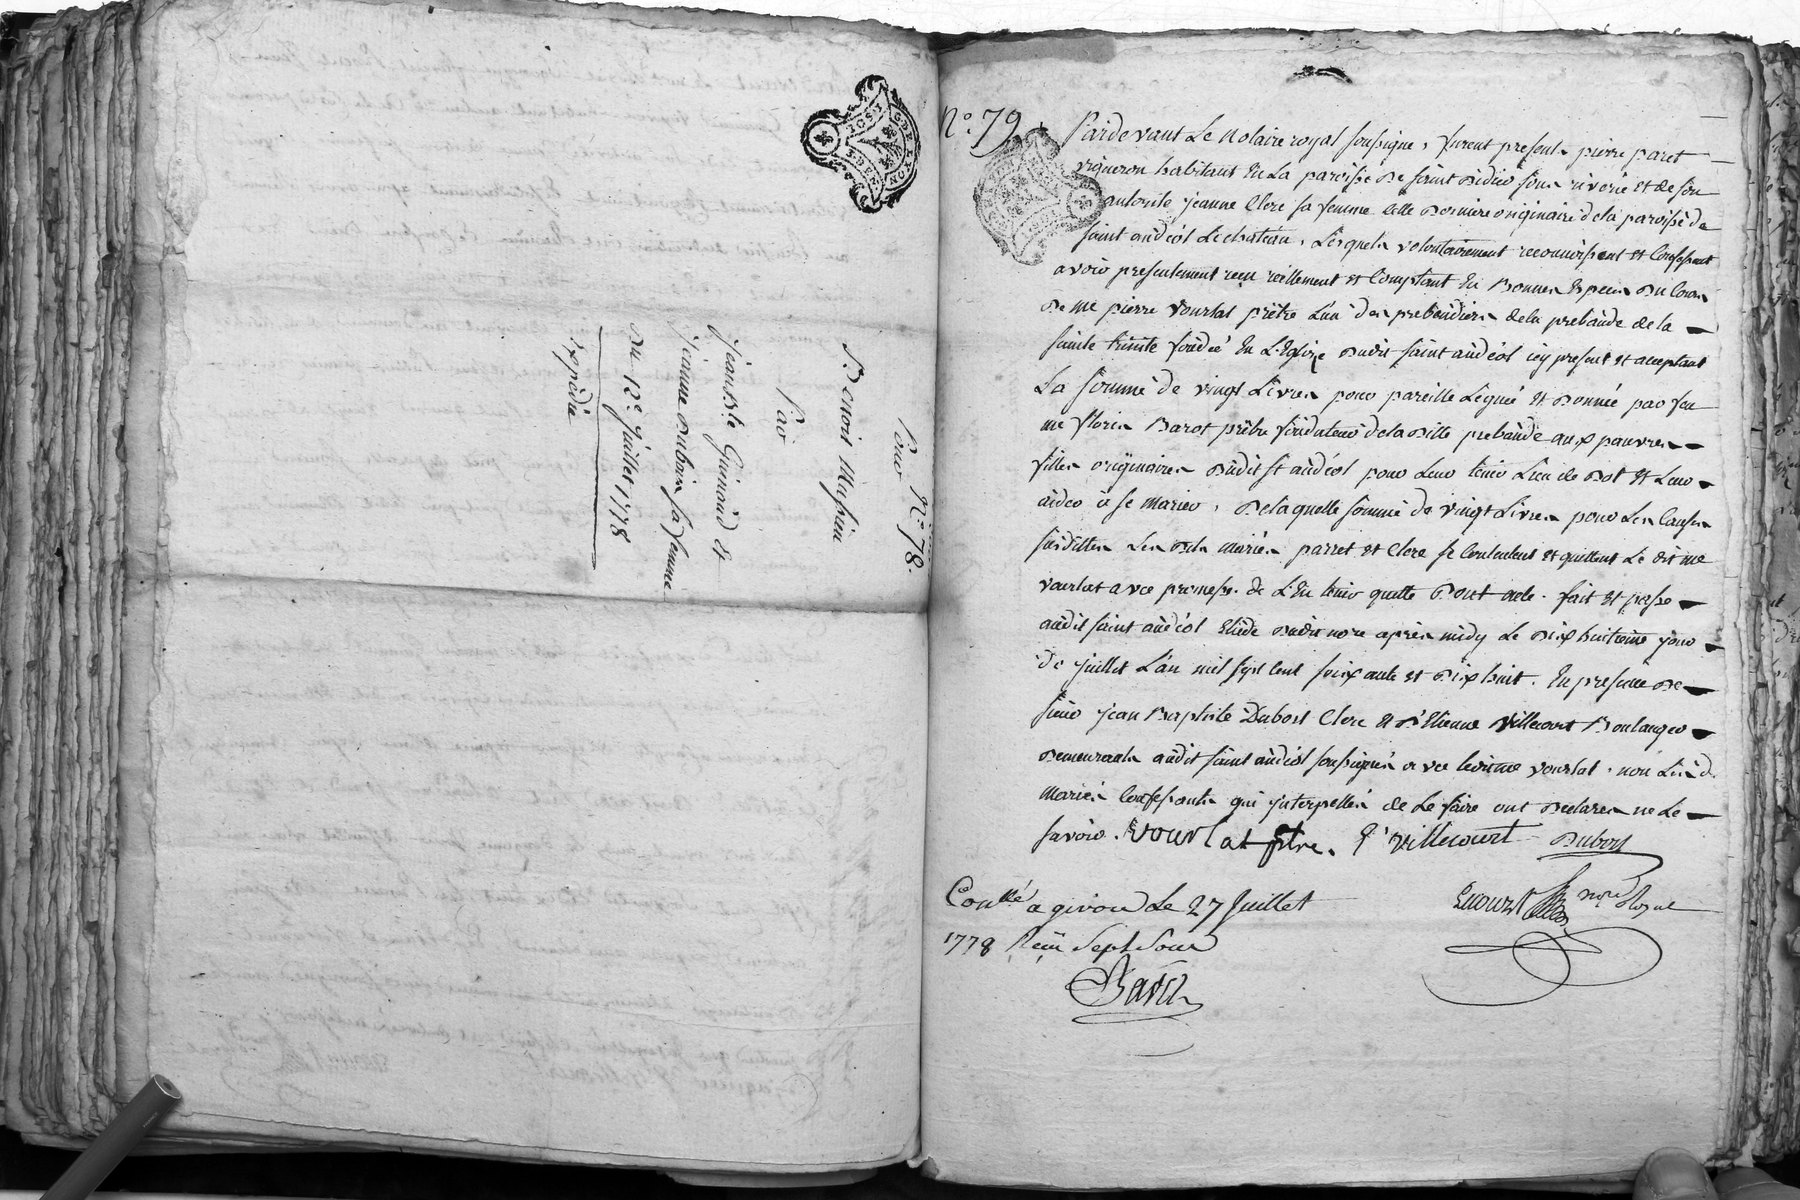 N.° 78.
Pour
Benoit Massieu
Par
Jean Bte. Guinand et
Jeanne Dubain sa femme
Du 12e. Juillet 1778
Expédié
N.° 79.
Pardevant Le Notaire royal soussigné, furent presents pierre paret
vigneron habitant En La paroisse De saint Didier sous riverie et de son
autorité jeanne Clere sa femme Celle Derniere originaire de la paroisse de
saint andéol Le chateau, Lesquels volontairement reconnoissent et Confessent
avoir presentement reçu reellement et Comptant En Bonnes Especes Du Cours
De me pierre vourlat prêtre L'un des prebendiers de la prebande de la
sainte trinité fondée En L'Eglize Dudit saint andéol icy present et acceptant
La somme de vingt Livres pour pareille Leguée et Donnée par feu
me florin Barot prêtre fondateur de la Ditte prebande aux pauvres
filles originaires Dudit st andéol pour Leur tenir Lieu de Dot et Leur
aider à se marier, De laquelle somme de vingt Livres pour Les Causes
susdittes Les Dits mariés parret et Clere se Contentent et quittent Le dit me
vourlat avec promesse de L'En tenir quitte Dont acte. fait et passé
audit saint andéol Etude Dudit nore après midy Le Dix huitieme jour
De juillet L'an mil sept cent soixante et Dix huit. En presence De
sieur jean Baptiste Dubost Clerc et Sr Etienne Villecourt Boulanger
Demeurants audit saint andéol soussignés avec ledit me vourlat. non Lesd.
mariés Confessants qui interpellés de Le faire ont Declarés ne Le
savoir. vourlat ptre. E villecourt Dubost
Conllé a givors Le 27 Juillet
1778 Reçu Sept Sous
nore Royal